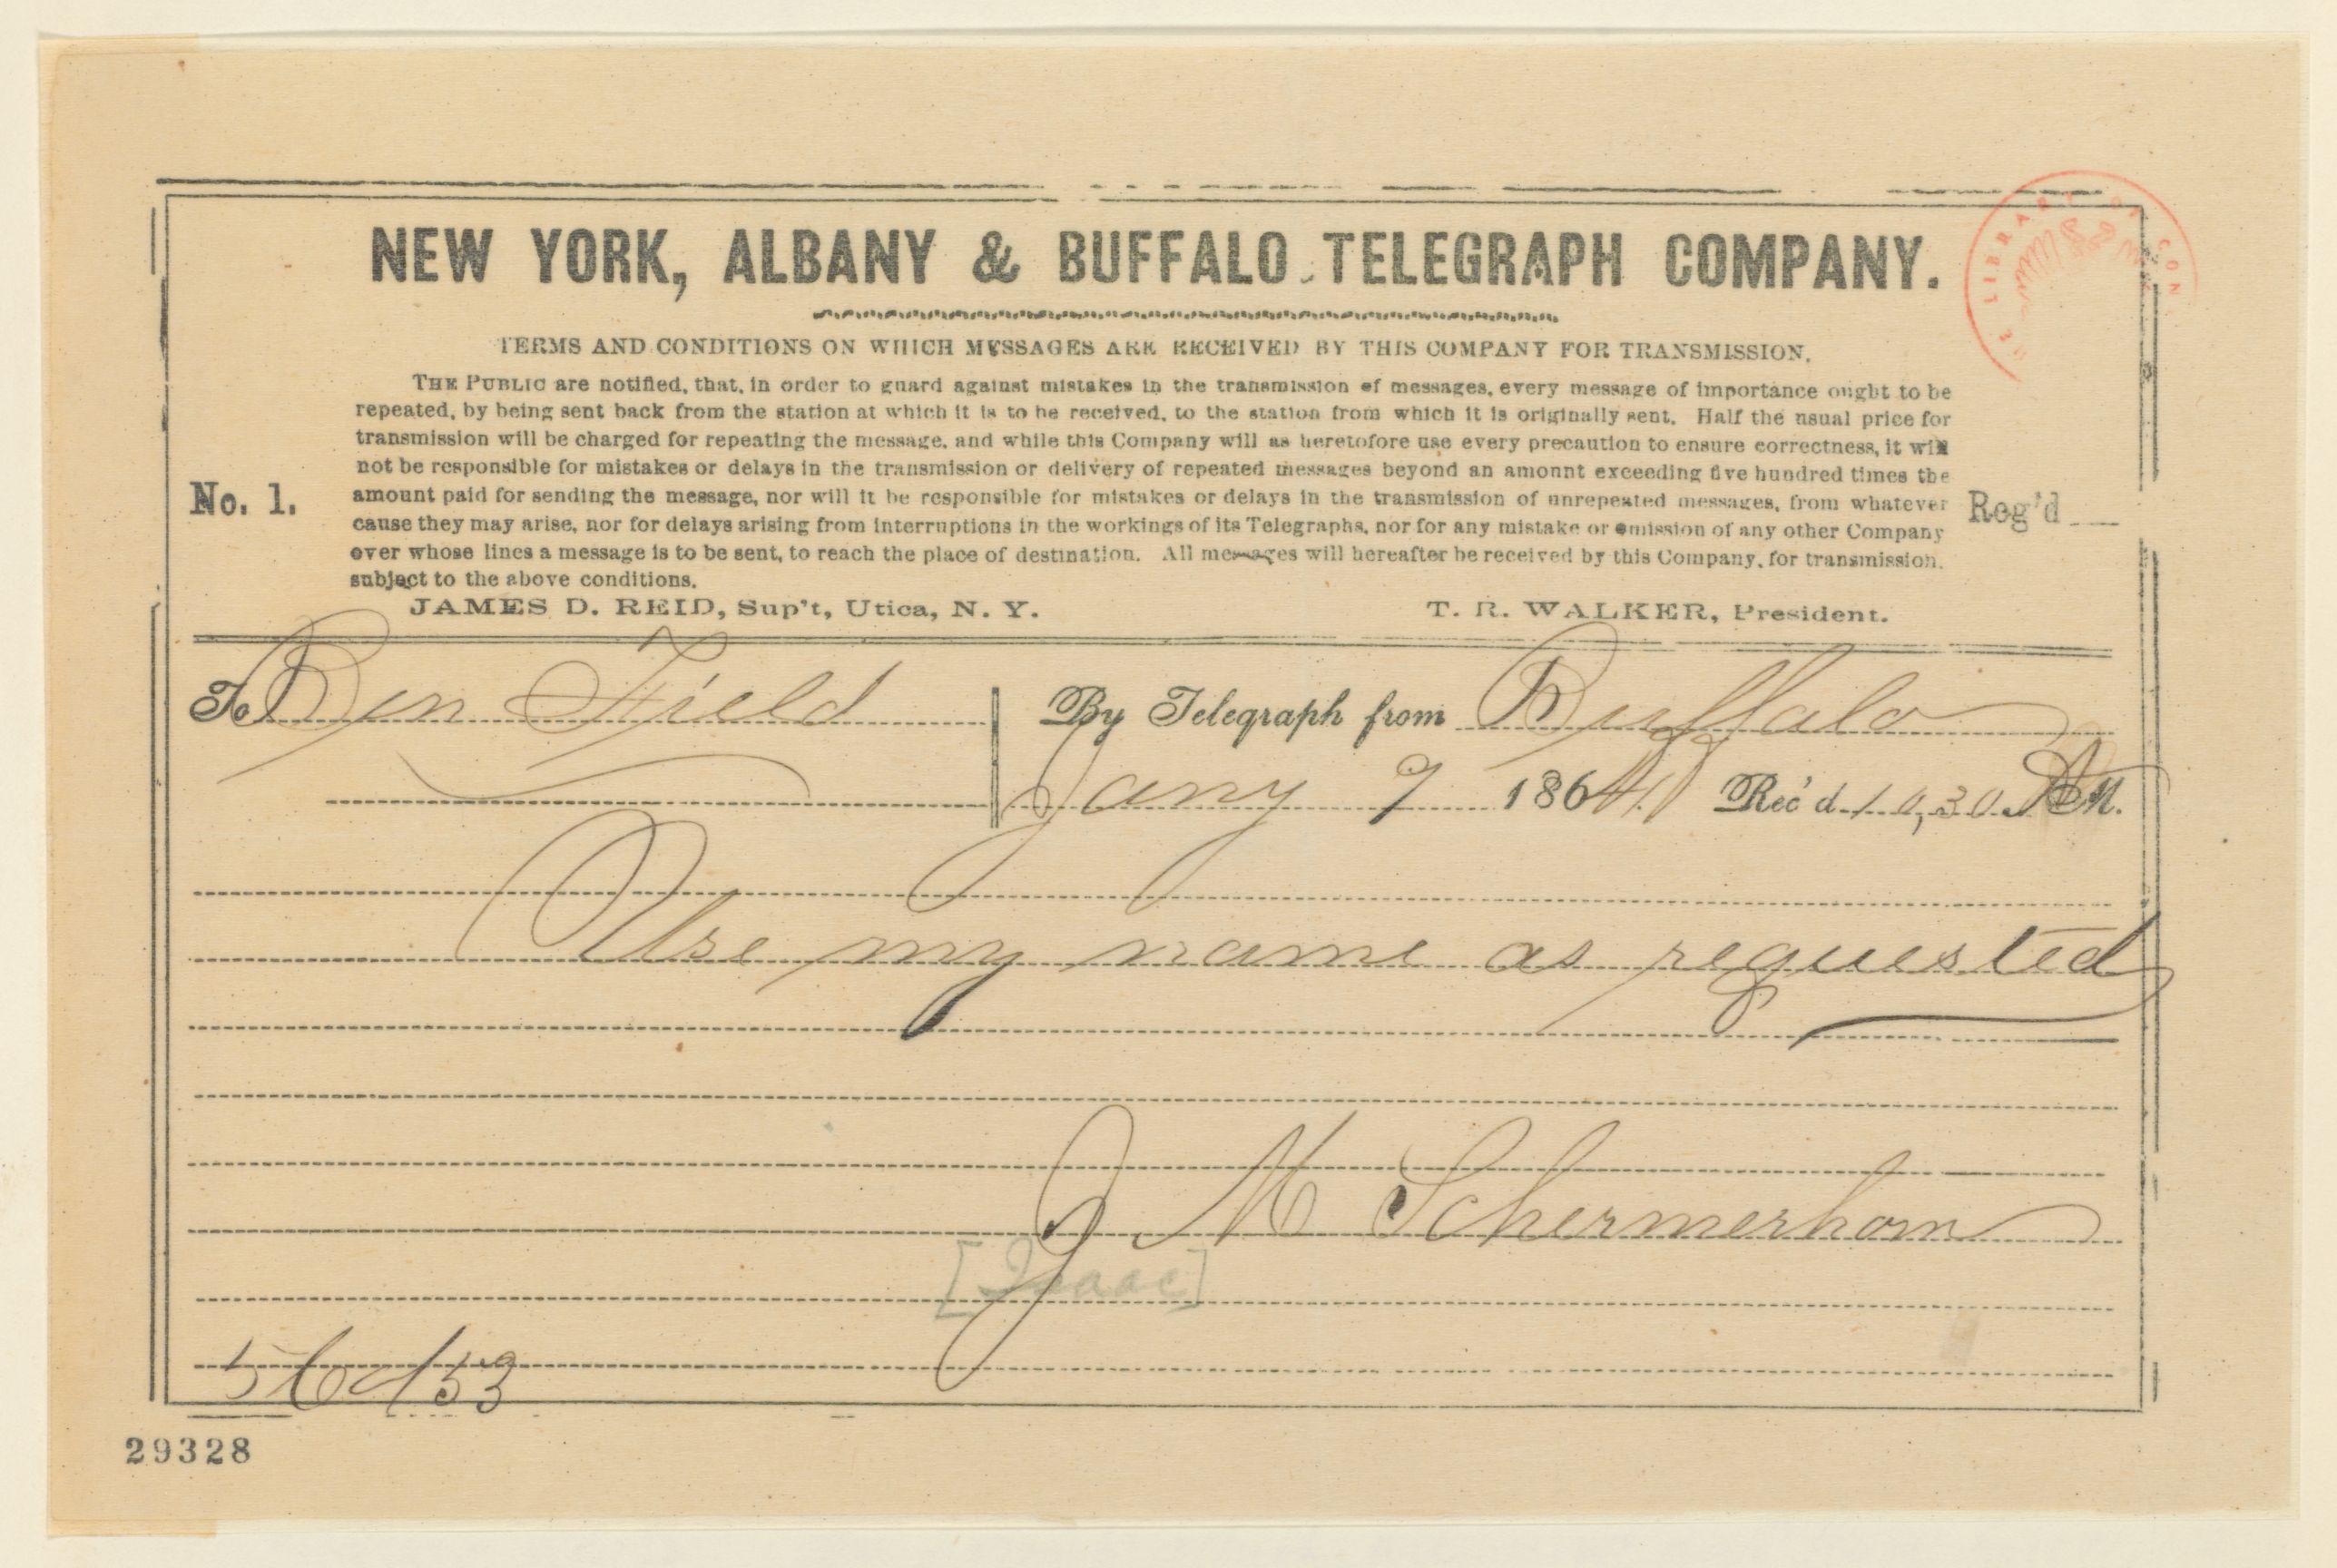 NEW YORK, ALBANY & BUFFALO TELEGRAPH COMPANY.
TERMS AND CONDITIONS ON WHICH MESSAGES ARE RECEIVED BY THIS COMPANY FOR TRANSMISSION.
THE PUBLIC are notified, that, in order to guard against mistakes in the transmission of messages, every message of importance ought to be
repeated, by being sent back from the station at which it is to be received, to the station from which it is originally sent. Half the usual price for
transmission will be charged for repeating the message, and while this Company will as heretofore use every precaution to ensure correctness, it will
not be responsible for mistakes or delays in the transmission or delivery of repeated messages beyond an amount exceeding five hundred times the
amount paid for sending the message, nor will it be responsible for mistakes or delays in the transmission of unrepeated messages, from whatever
cause they may arise, nor for delays arising from interruptions in the workings of its Telegraphs, nor for any mistake or omission of any other Company
over whose lines a message is to be sent, to reach the place of destination. All messages will hereafter be received by this Company, for transmission,
subject to the above conditions.
No. 1.
Reg'd
JAMES D. REID, Sup't, Utica, N. Y.
T. R. WALKER, President.
To Ben Field
By Telegraph from Buffalo
Jany 7 1864 Rec'd 10,30 M.
Use my name as requested
J M Schermerhorn
[Isaac]
29328
LIBRARY OF CON